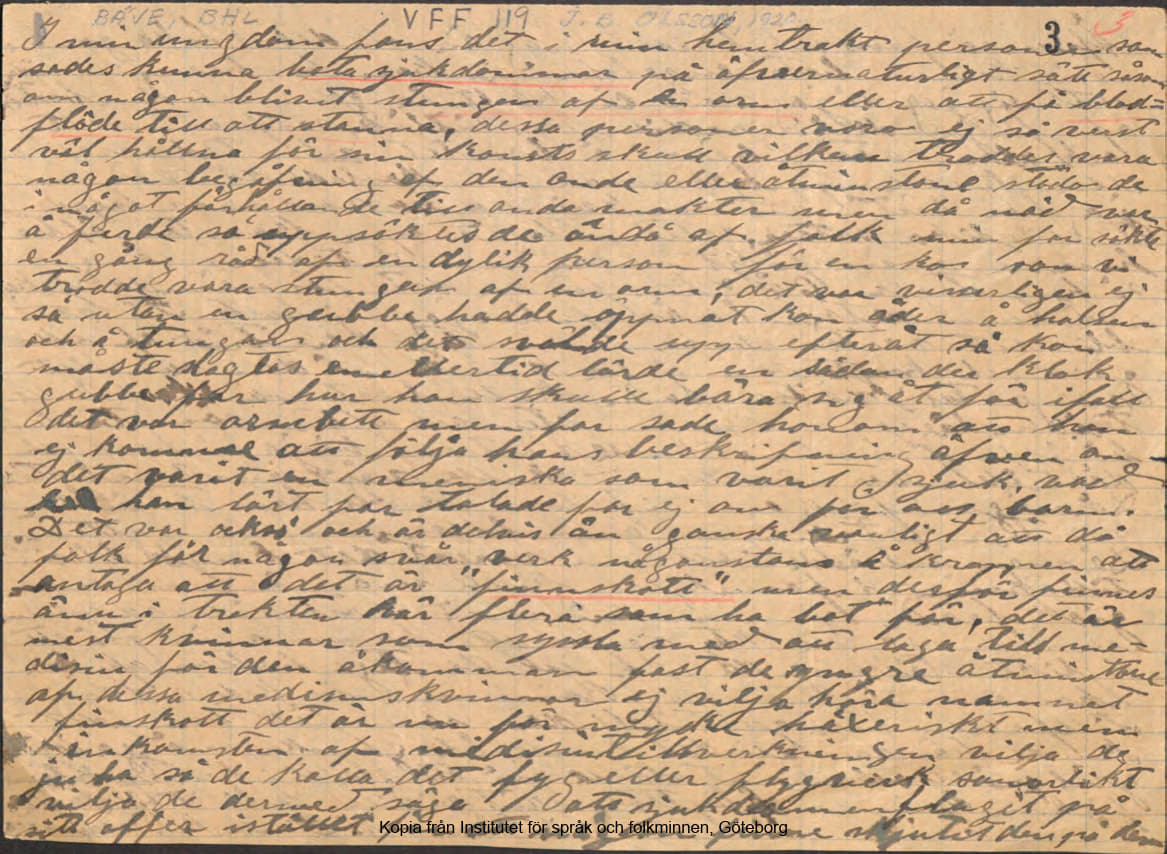 BÄVE, BHL VFF 119 J. B. OLSSON, 1920
3 3
I min ungdom fans det i min hemtrakt personer som
sades kunna bota sjukdommar på öfvernaturligt sätt såsom
om någon blivit stungen af en orm eller att få blod=
flöde till att stanna, dessa personer voro ej så värst
väl hållna för sin konsts skull vilken troddes vara
någon begåfning af den onde eller åtminstone stodo de
i något förhållande till onda makter men då nöd var
å färde så uppsöktes de ändå af folk min far sökte
en gång råd af en dylik person för en ko som vi
trodde vara stungen af en orm, det var visserligen ej
så utan en gubbe hadde öppnat kon åder å halsen
och å tungan och det svälde upp efteråt så kon
måste slagtas emellertid lärde en sådan der klok
gubbe far hur han skulle bära sig åt för ifall
det var ormbett men far sade honom att han
ej kommer att följa hans beskrifning äfven om
det varit en meniska som varit sjuk, vad
han lärt far talade far ej om för oss barn.
Det var också och är delvis än ganska vanligt att då
folk får någon svår verk någonstans å kroppen att
antaga att det är "finnskott" men derför finnes
änu i trakten här flera som ha bot för, det är
mest kvinnor som syssla med att laga till me-
disin för den åkomman fast de yngre åtminstone
af dessa medisinskvinnor ej vilja höra namnet
finskott det är nu för mycke häxeriskt men
inkomsten af medisintillverkningen vilja de
ju ha så de kalla det flyg eller flygverk sanolikt
vilja de dermed säga att sjukdommen flugit på
sitt offer istället för att skjutit den på dem
Kopia från Institutet för språk och folkminnen, Göteborg